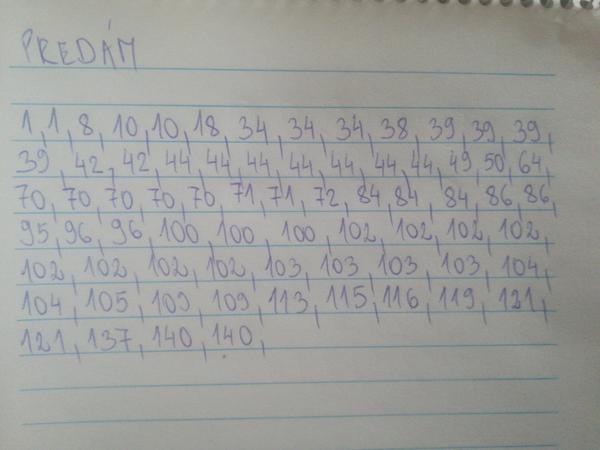 PREDÁM
1, 1, 8, 10, 10, 18, 34, 34, 34, 38, 39, 39, 39,
39, 42, 42, 44, 44, 44, 44, 44, 44, 44, 49, 50, 64,
70, 70, 70, 70, 70, 71, 71, 72, 84, 84, 84, 86, 86,
95, 96, 96, 100, 100, 100, 102, 102, 102, 102,
102, 102, 102, 102, 103, 103, 103, 103, 104,
104, 105, 109, 109, 113, 115, 116, 119, 121,
121, 137, 140, 140,